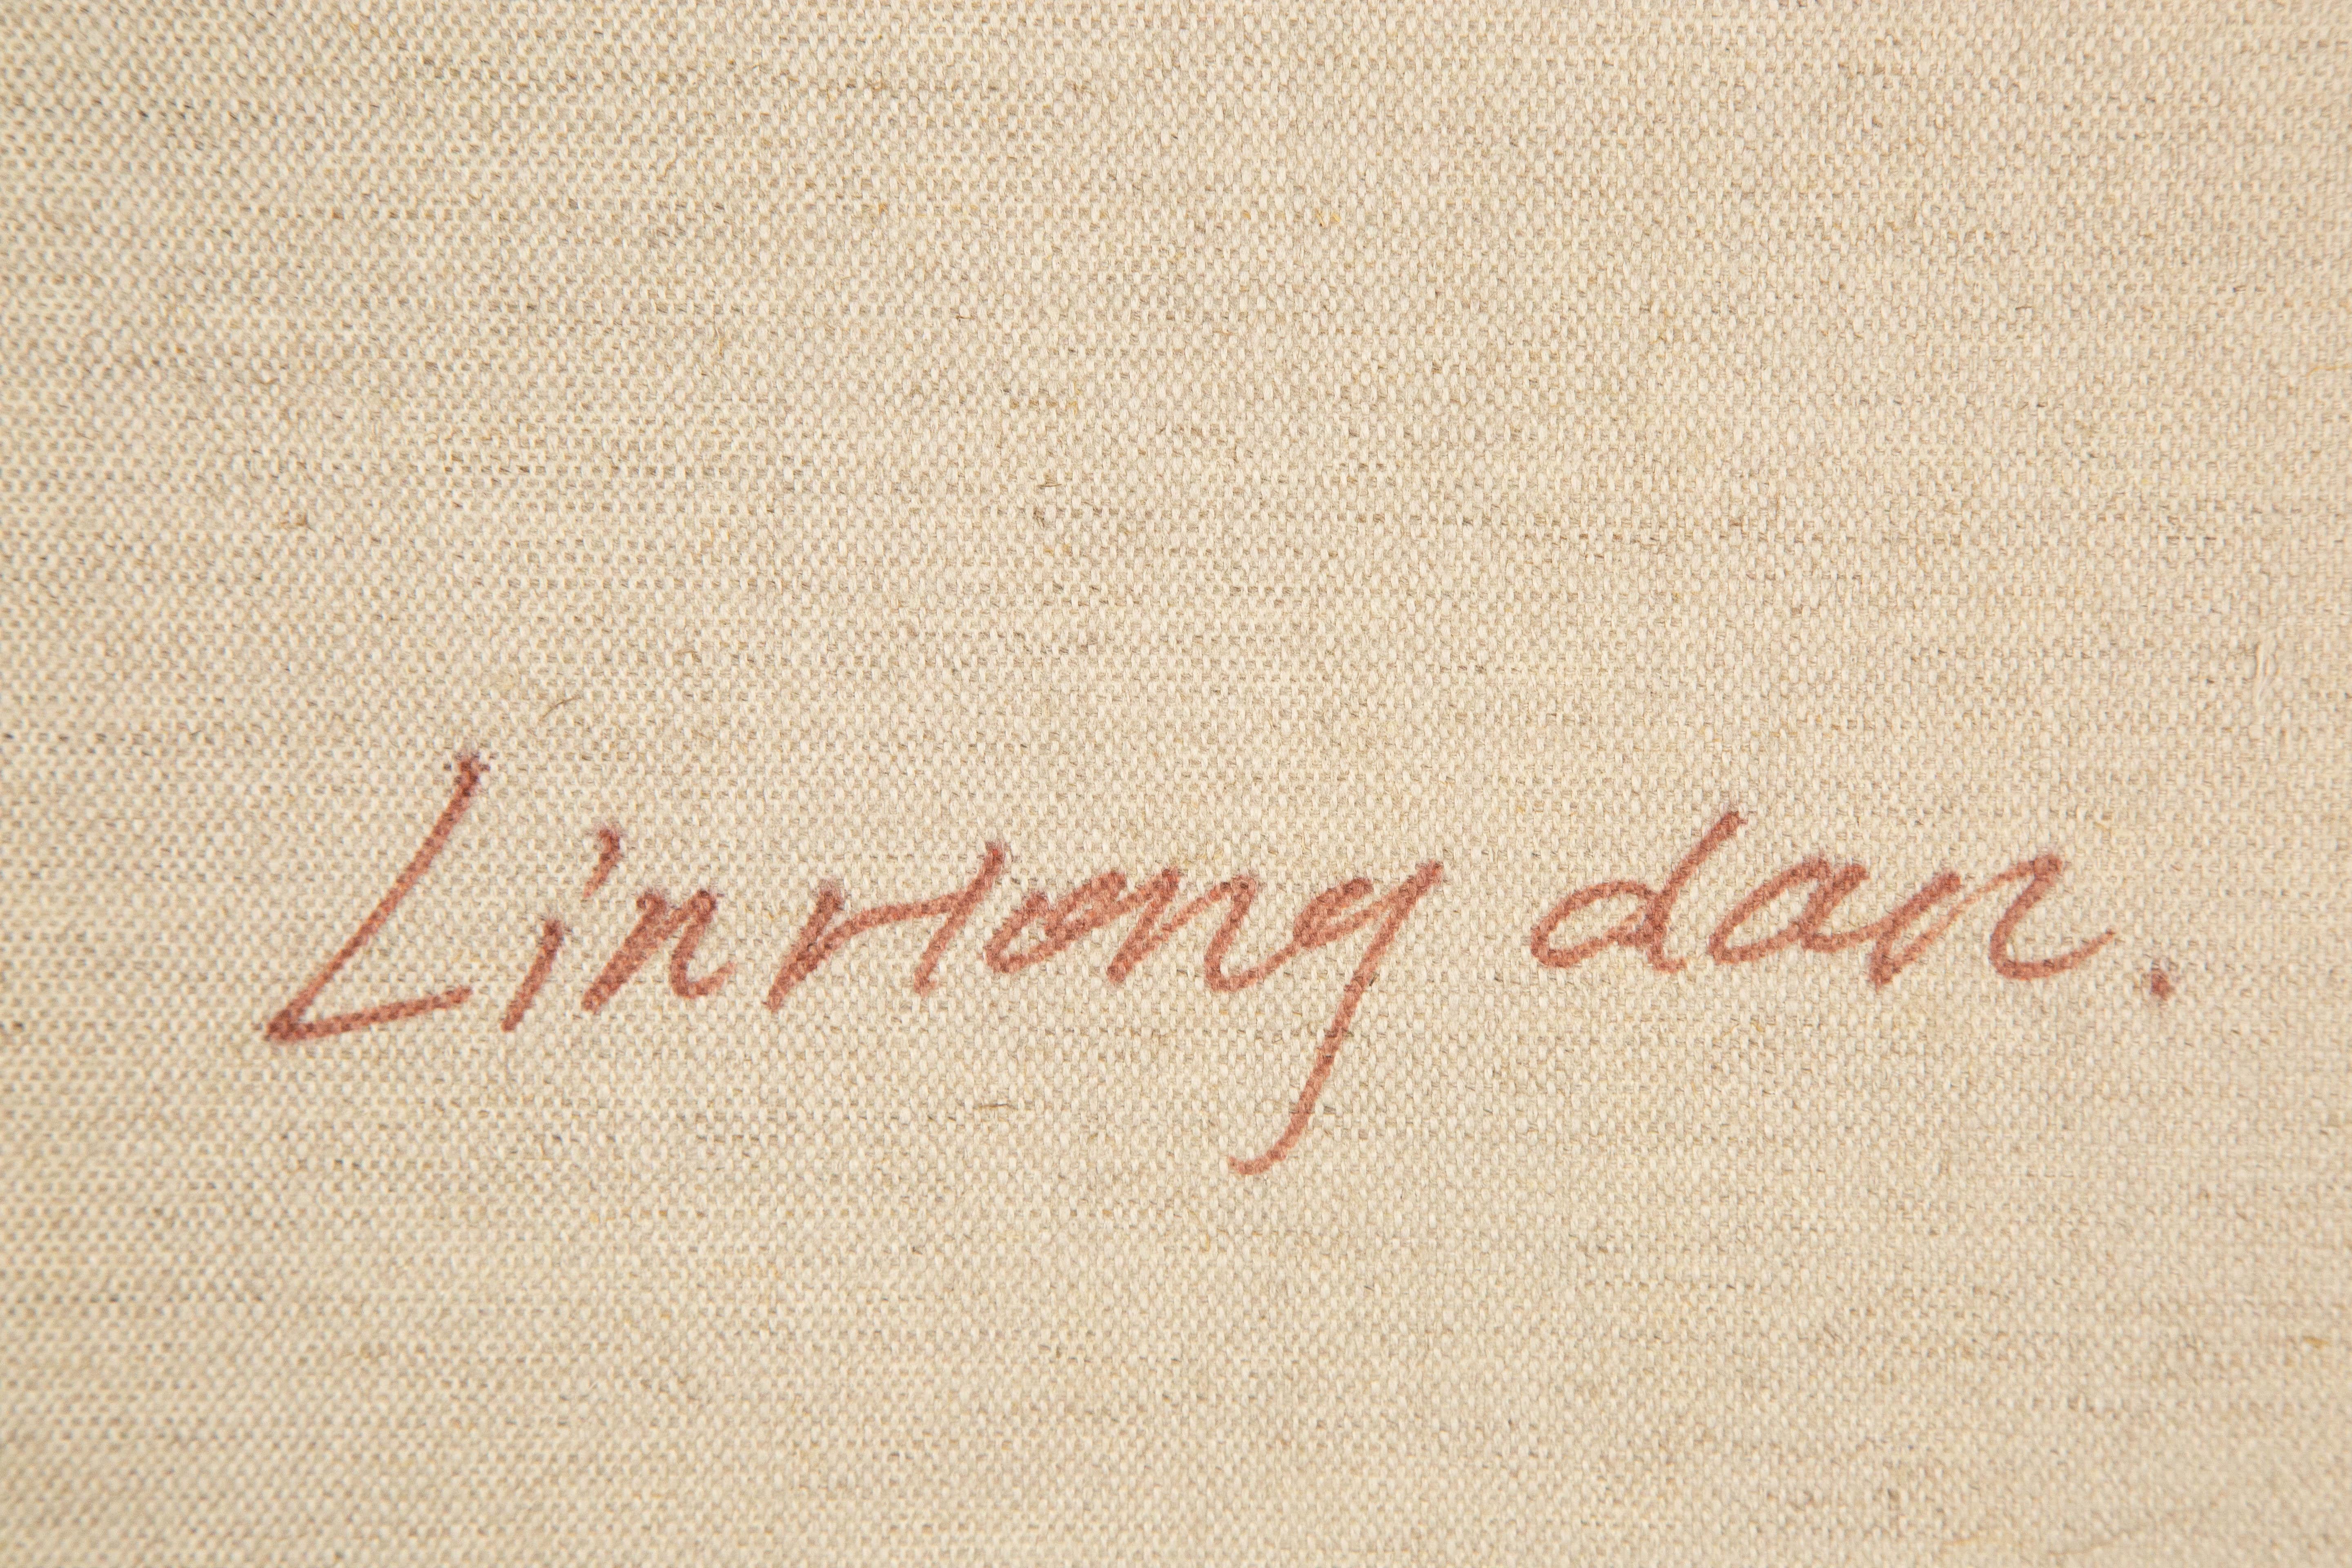 Lin Hong dan.